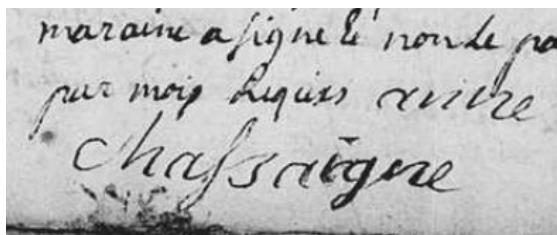 maraine a signe le non le pa
par mois Requis anne
chassaigne